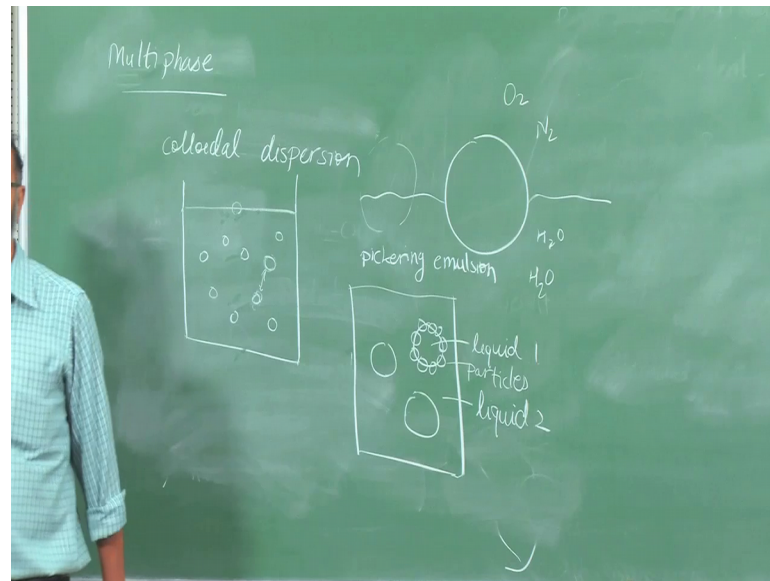 Multiphase
colloidal dispersion
O2
N2
H2O
H2O
pickering emulsion
liquid 1
particles
liquid 2